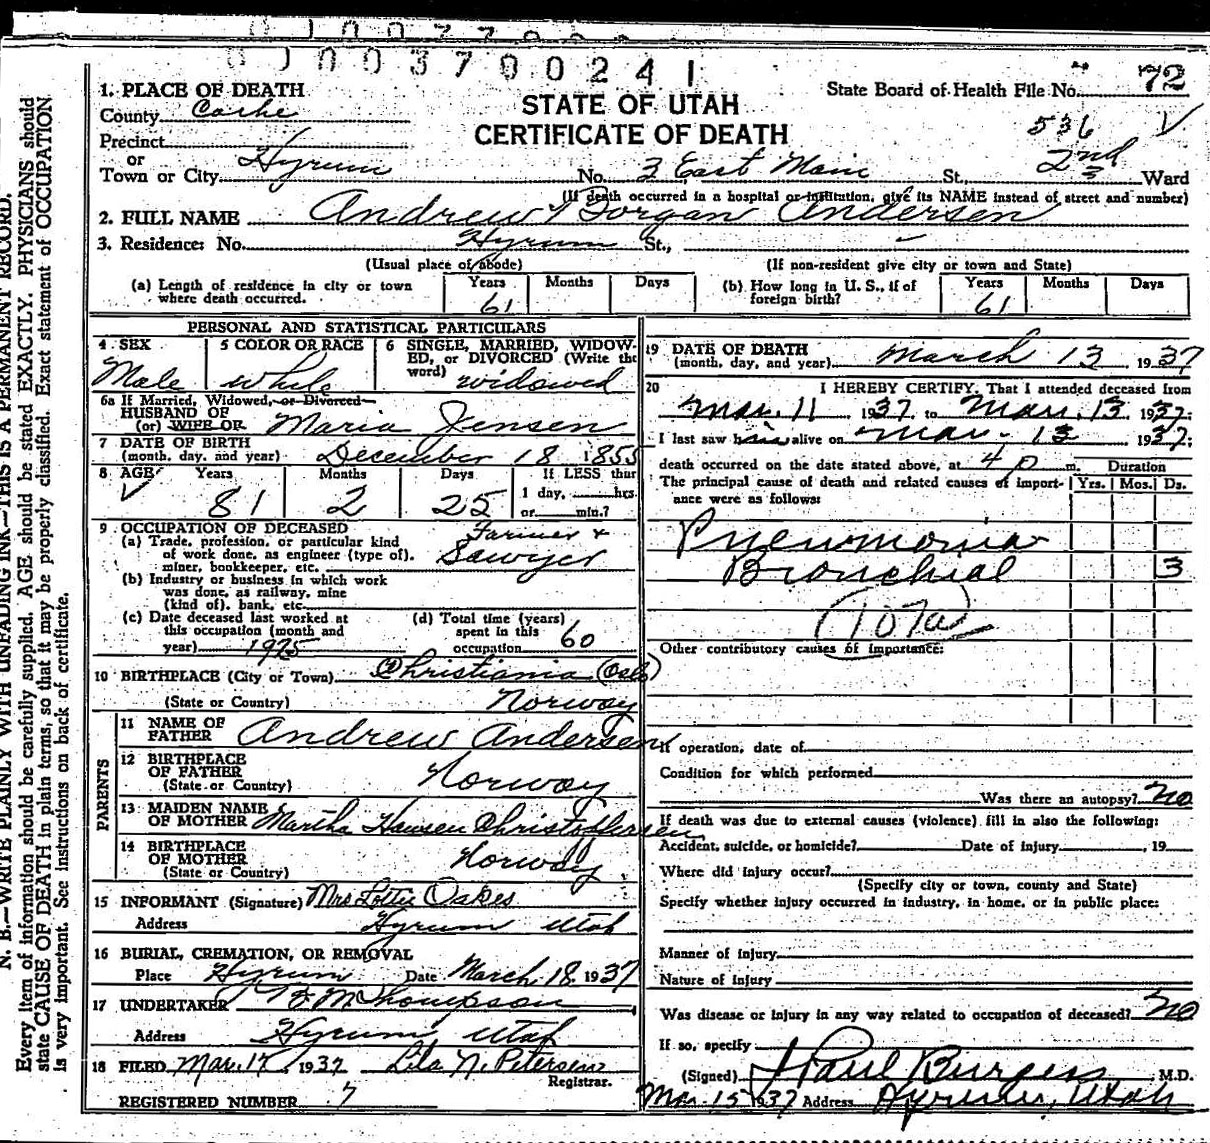 0100370024 1
State Board of Health File No. 72
STATE OF UTAH
CERTIFICATE OF DEATH
536
1. PLACE OF DEATH
County Cache
Precinct
or
Town or City Hyrum No. 3 East Main St., 2nd Ward
(If death occurred in a hospital or institution, give its NAME instead of street and number)
2. FULL NAME Andrew Andersen
3. Residence: No. Hyrum St.,
(Usual place of abode) (If non-resident give city or town and State)
(a) Length of residence in city or town where death occurred. Years 61 Months Days
(b) How long in U. S., if of foreign birth? Years 61 Months Days
PERSONAL AND STATISTICAL PARTICULARS
4 SEX Male
5 COLOR OR RACE White
6 SINGLE, MARRIED, WIDOWED, or DIVORCED (Write the word) widowed
6a If Married, Widowed, or Divorced
HUSBAND OF
(or) WIFE OF Maria Jensen
7 DATE OF BIRTH
(month, day, and year) December 18 1855
8 AGE Years 81 Months 2 Days 25 If LESS than 1 day, hrs. or min.?
9 OCCUPATION OF DECEASED
(a) Trade, profession, or particular kind of work done, as engineer (type of), miner, bookkeeper, etc. Farmer + Sawyer
(b) Industry or business in which work was done, as railway, mine (kind of), bank, etc.
(c) Date deceased last worked at this occupation (month and year) 1925
(d) Total time (years) spent in this occupation 60
10 BIRTHPLACE (City or Town) Christiania (Oslo)
(State or Country) Norway
PARENTS
11 NAME OF FATHER Andrew Andersen
12 BIRTHPLACE OF FATHER
(State or Country) Norway
13 MAIDEN NAME OF MOTHER Martha Hansen Christoffersen
14 BIRTHPLACE OF MOTHER
(State or Country) Norway
15 INFORMANT (Signature) Mrs Lottie Oakes
Address Hyrum Utah
16 BURIAL, CREMATION, OR REMOVAL
Place Hyrum Date March 18 1937
17 UNDERTAKER Thompson
Address Hyrum, Utah
18 FILED Mar. 17 1937 Lila N. Petersen
Registrar.
REGISTERED NUMBER 7
19 DATE OF DEATH
(month, day, and year) March 13 1937
20 I HEREBY CERTIFY, That I attended deceased from
Mar. 11 1937, to Mar. 13 1937;
I last saw him alive on Mar. 13 1937;
death occurred on the date stated above, at 4 p m. Duration
The principal cause of death and related causes of importance were as follows: Yrs. Mos. Ds.
Pneumonia
Bronchial 3
107a
Other contributory causes of importance:
If operation, date of
Condition for which performed
Was there an autopsy? no
If death was due to external causes (violence) fill in also the following:
Accident, suicide, or homicide? Date of injury , 19
Where did injury occur?
(Specify city or town, county and State)
Specify whether injury occurred in industry, in home, or in public place:
Manner of injury
Nature of injury
Was disease or injury in any way related to occupation of deceased? no
If so, specify
(Signed) J Paul Burgess M.D.
Mar. 15 1937 Address Hyrum, Utah
N. B.—WRITE PLAINLY WITH UNFADING INK—THIS IS A PERMANENT RECORD.
Every item of information should be carefully supplied. AGE should be stated EXACTLY. PHYSICIANS should
state CAUSE OF DEATH in plain terms, so that it may be properly classified. Exact statement of OCCUPATION
is very important. See instructions on back of certificate.